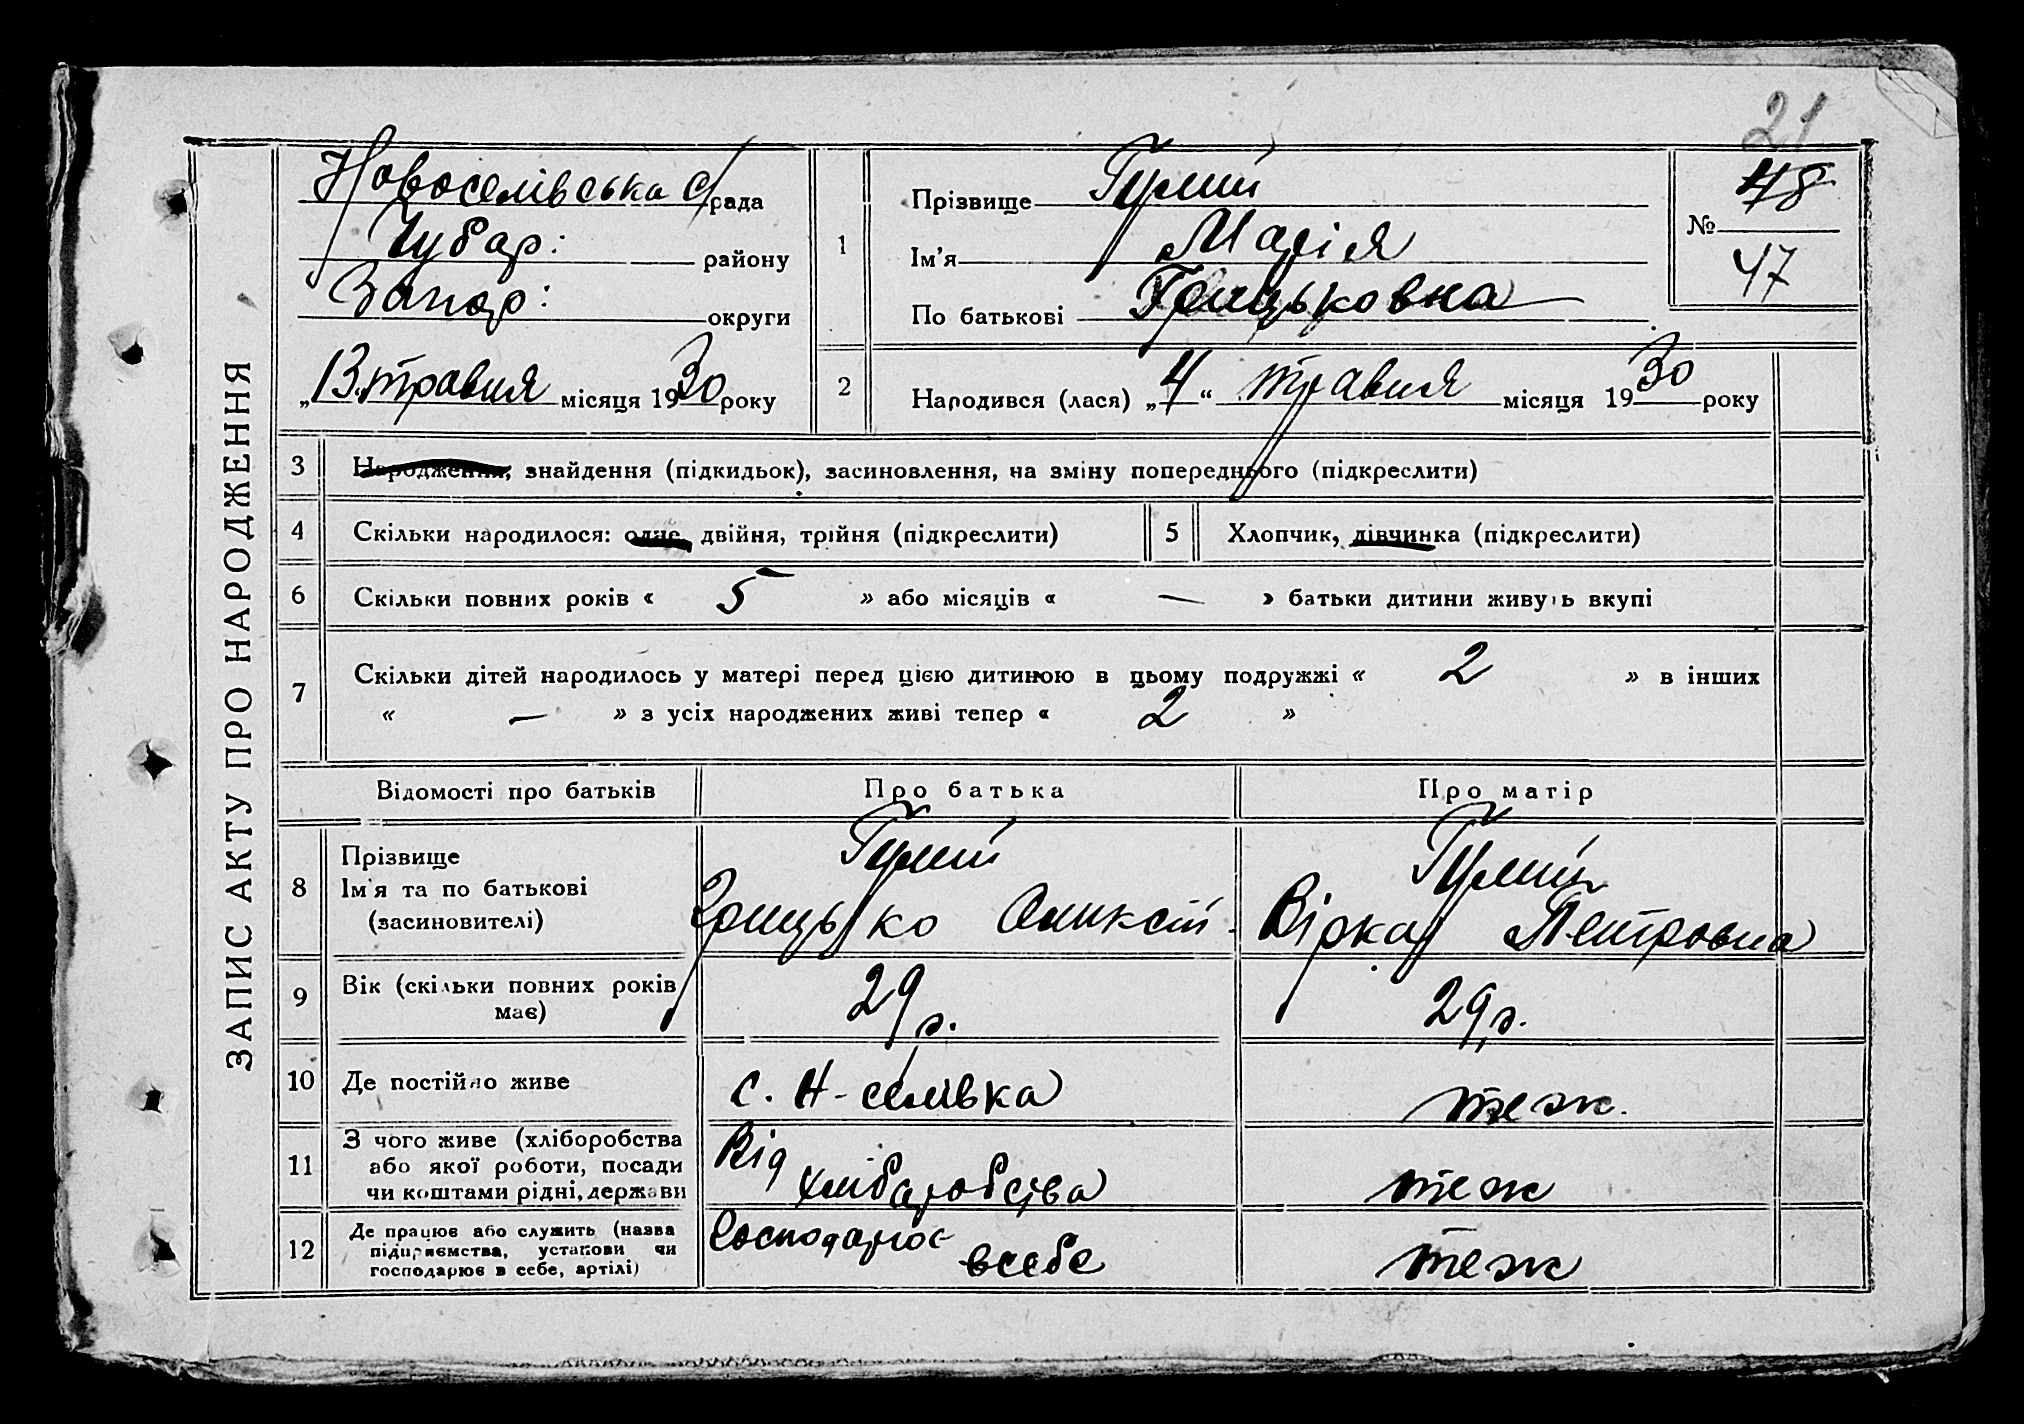 21
ЗАПИС АКТУ ПРО НАРОДЖЕННЯ
Новоселівська с/рада
Чубар: району
Запор: округи
„13“ травня місяця 1930 року
1
Прізвище Гумий
Ім'я Марія
По батькові Грицьковна
№ 48
47
2 Народився (лася) „4“ травня місяця 1930 року
3 Народження, знайдення (підкидьок), засиновлення, на зміну попереднього (підкреслити)
4 Скільки народилося: одне, двійня, трійня (підкреслити)
5 Хлопчик, дівчинка (підкреслити)
6 Скільки повних років « 5 » або місяців « — » батьки дитини живуть вкупі
7 Скільки дітей народилось у матері перед цією дитиною в цьому подружжі « 2 » в інших
« — » з усіх народжених живі тепер « 2 »
Відомості про батьків Про батька Про матір
8 Прізвище
Ім'я та по батькові
(засиновителі)
Гумий
Грицько Оликсій
Гумий
Вірка Петровна
9 Вік (скільки повних років
має)
29 р.
29 р.
10 Де постійно живе
с. Н-селівка
теж.
11 З чого живе (хліборобства
або якої роботи, посади
чи коштами рідні, держави
Від
хлібаробства
теж
12 Де працює або служить (назва
підприємства, установи чи
господарює в себе, артілі)
Господарює
всебе
теж